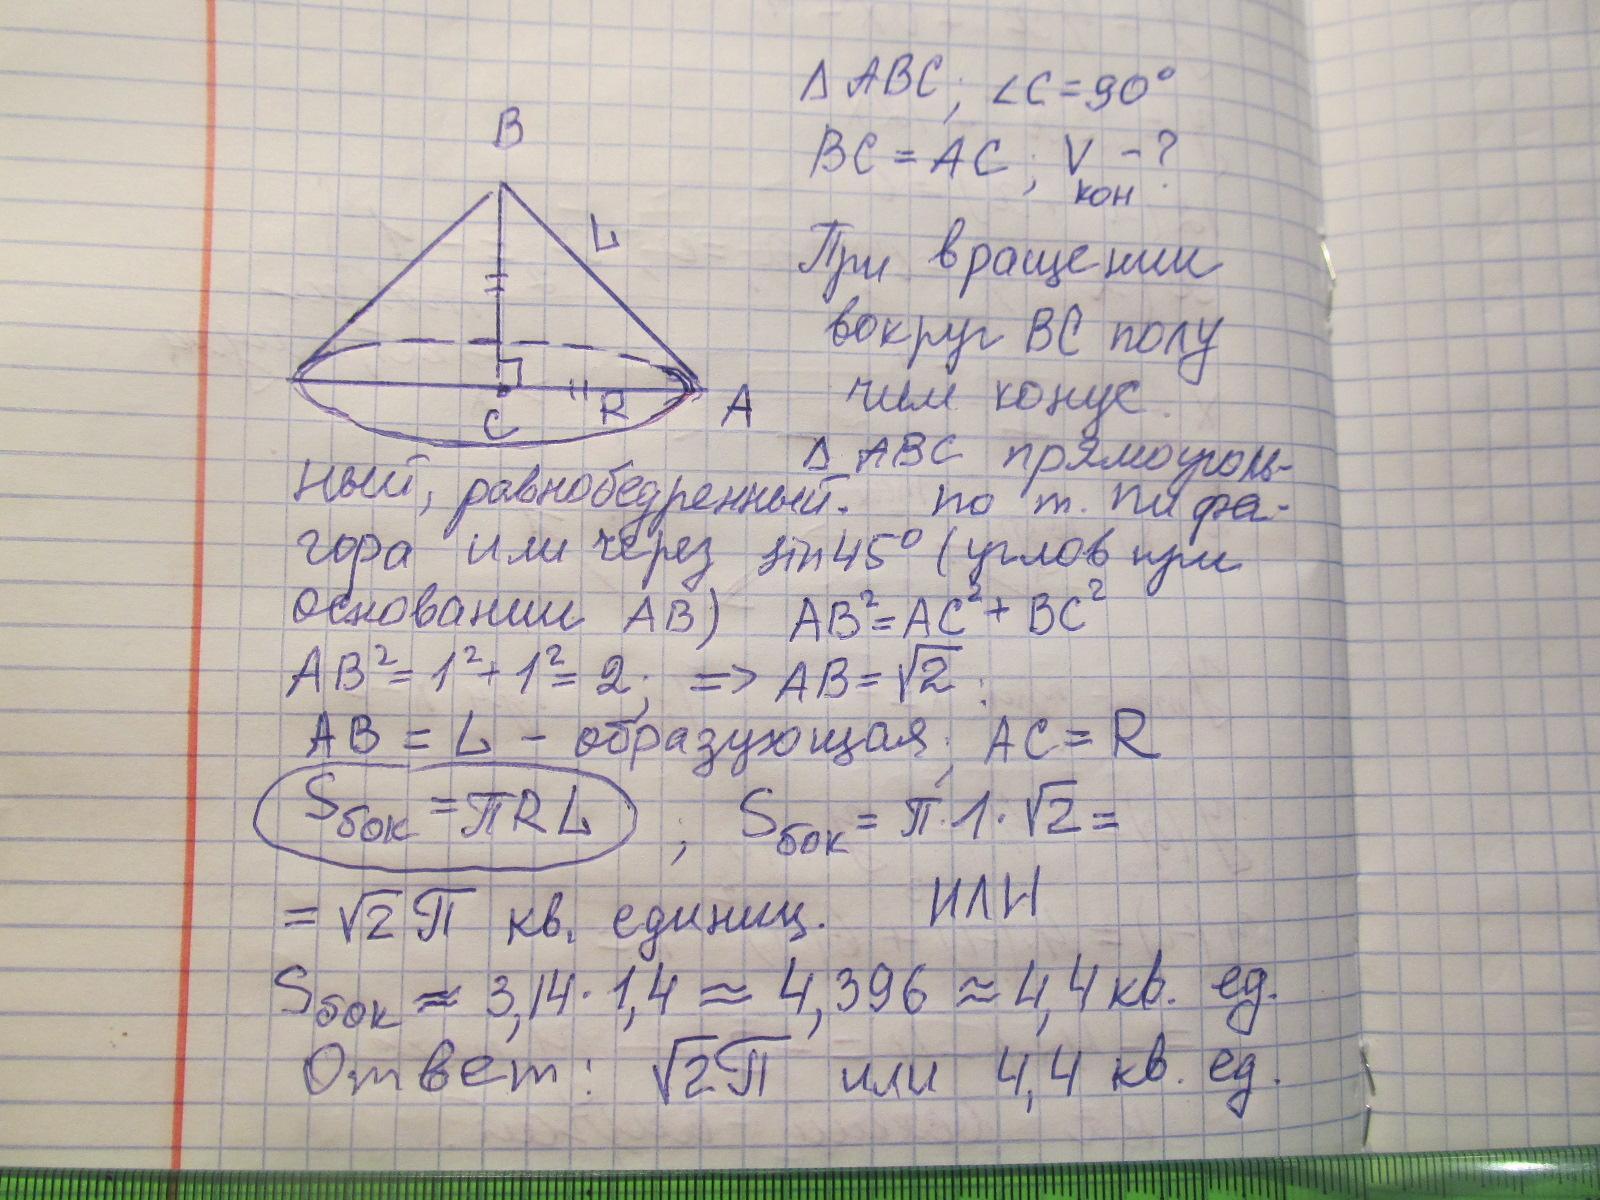 Δ ABC; ∠C=90°
BC = AC; V кон -?
При вращении
вокруг BC полу
чим конус.
Δ ABC прямоуголь-
ный, равнобедренный. по т. Пифа-
гора или через sin45° (углов при
основании AB) AB²=AC²+BC²
AB²=1²+1²=2; => AB=√2;
AB = L - образующая; AC=R
Sбок =πRL ; Sбок = π·1·√2=
=√2π кв. единиц. ИЛИ
Sбок ≈ 3,14·1,4 ≈ 4,396 ≈ 4,4 кв. ед.
Ответ: √2π или 4,4 кв. ед.
B
L
C
R
A